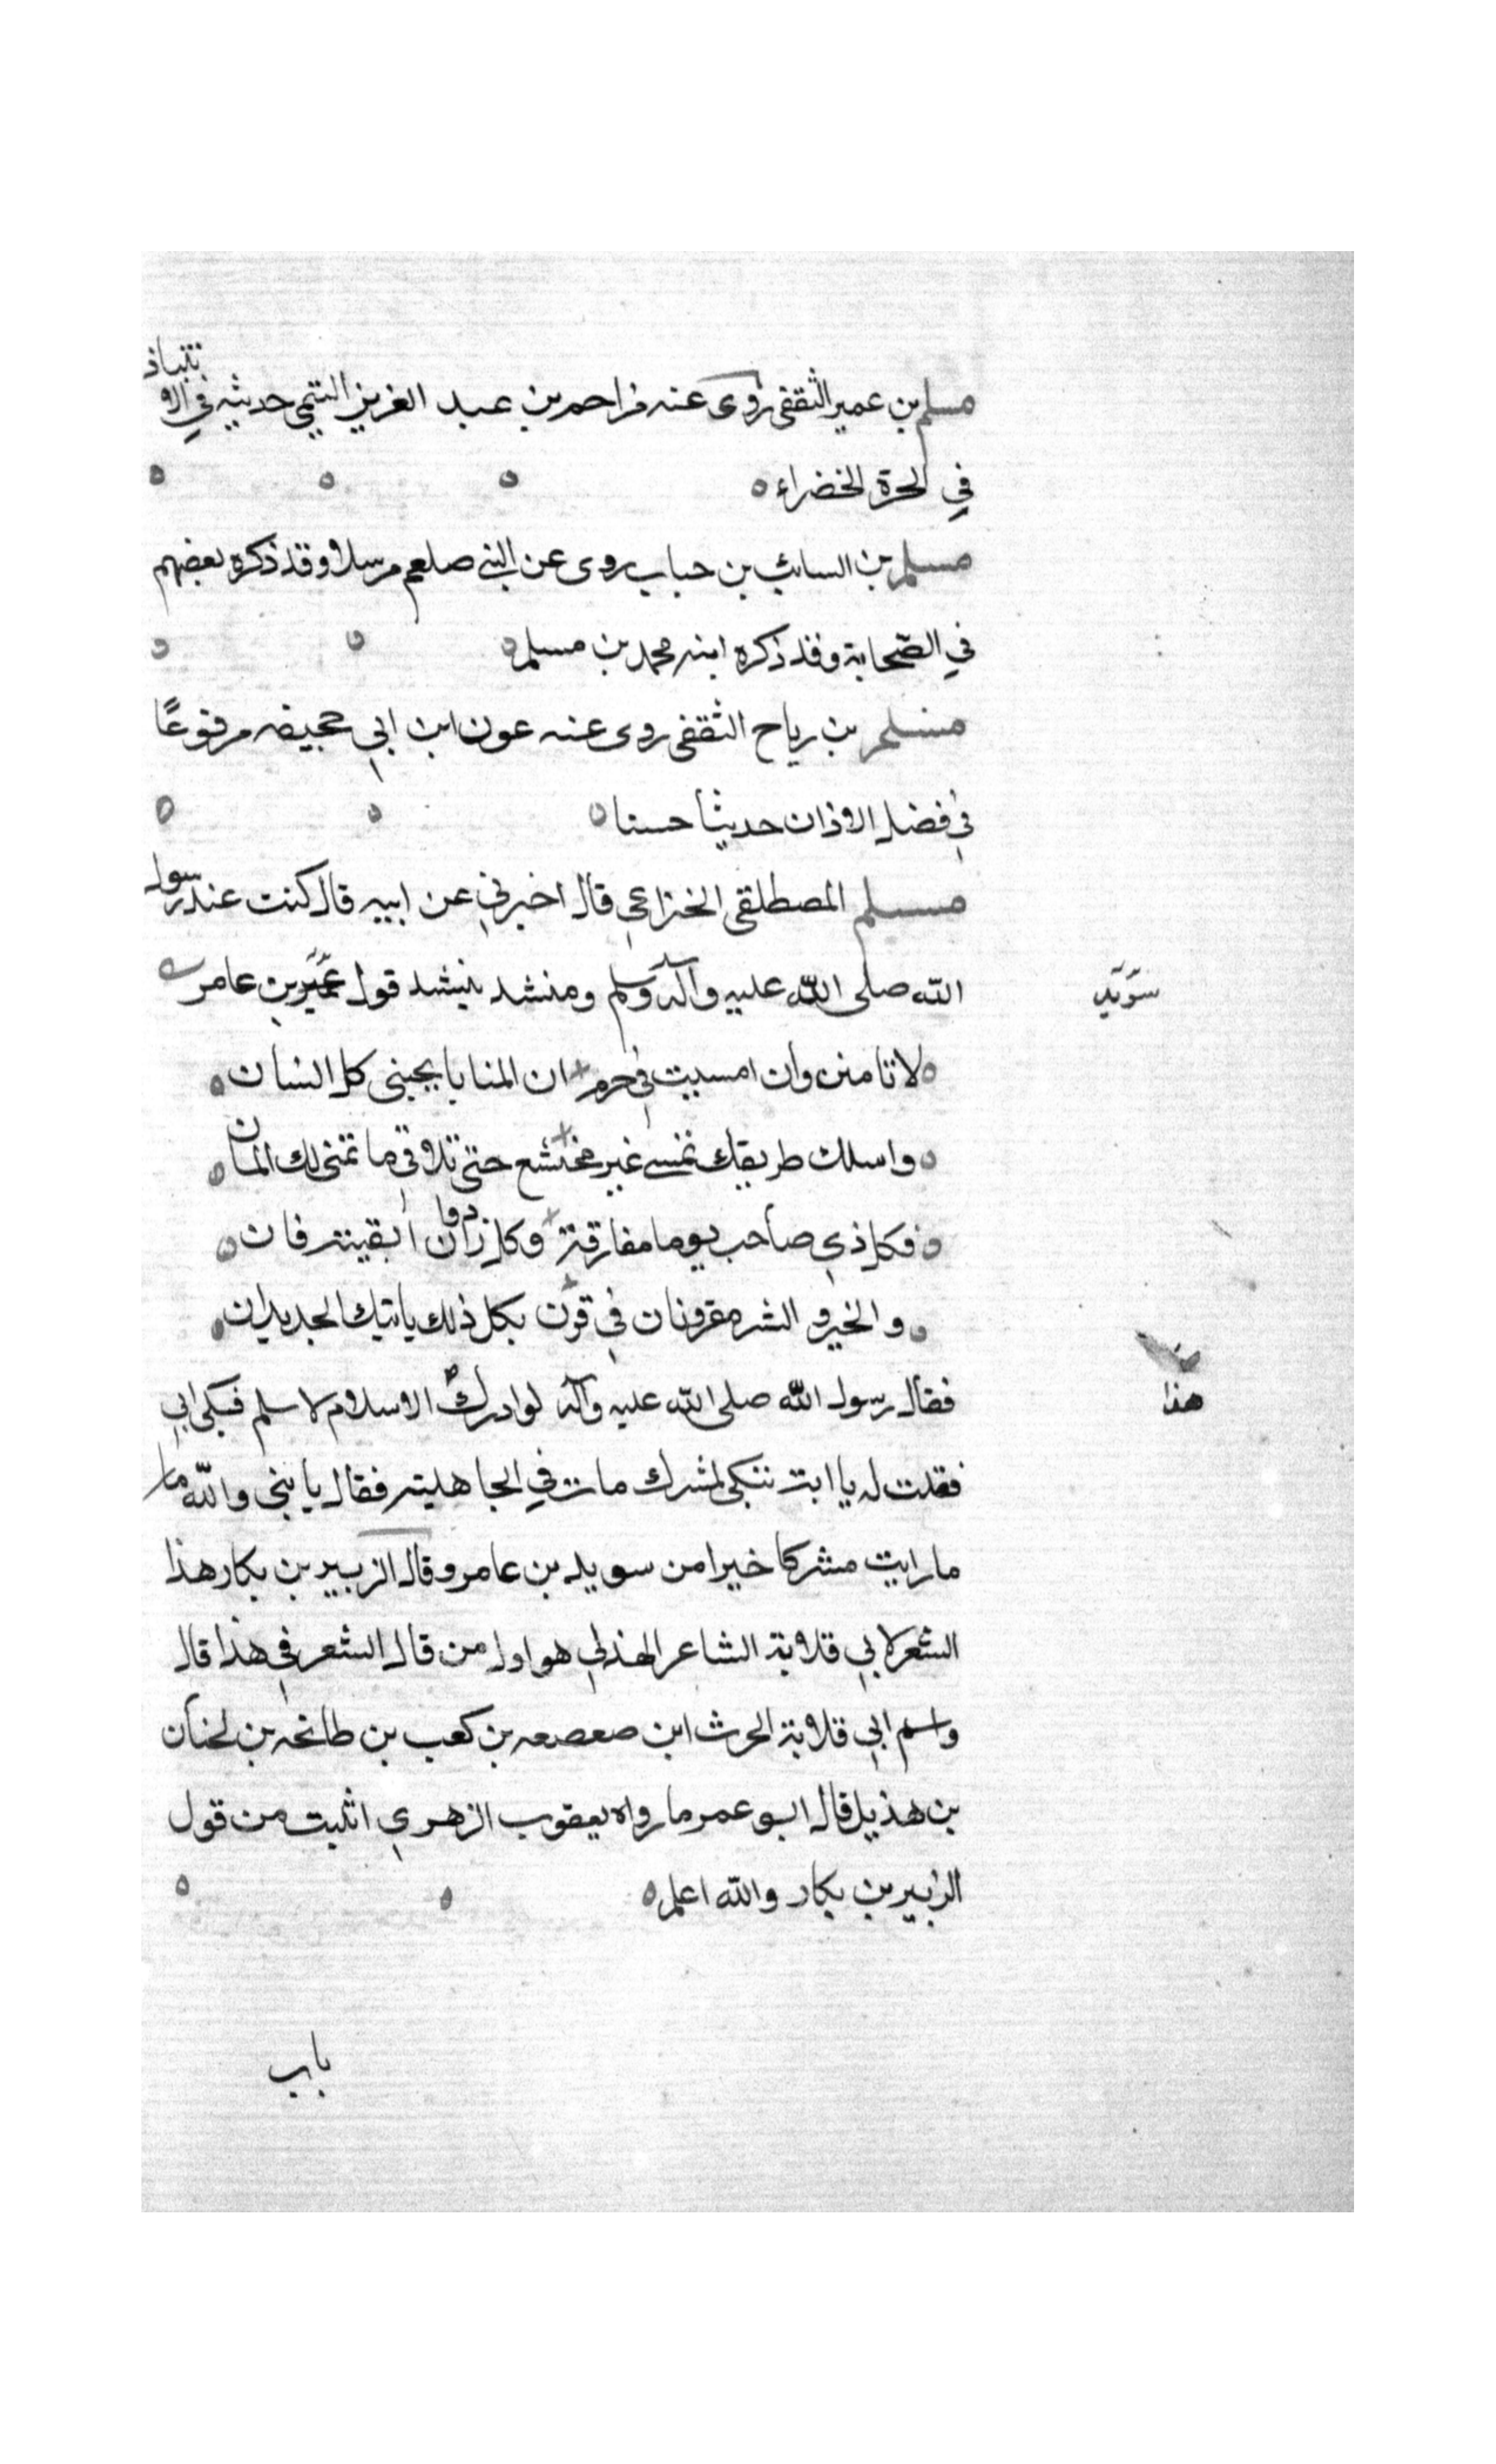 مسلم بن عمير الثقفى روى عنه مزاحم بن عبد العزيز التيمى حديثه في الانتباذ
في الجرة الخضراء
مسلم بن السائب بن خباب روى عن النبى صلعم مرسلا وقد ذكره بعضهم
في الصحابة وقد ذكره ابنه محمد بن مسلم
مسلم بن رياح الثقفى روى عنه عون ابن ابي حجيفه مرفوعًا
في فضل الاذان حديثا حسنا
مسلم المصطلقى الخزاعي قال اخبرني عن ابيه قال كنت عند رسول
الله صلى الله عليه وآله وسلم ومنشد ينشد قول عمير بن عامر
سويد
لا تامنن وان امسيت في حرم ان المنايا بجنبى كل انسان
واسلك طريقك تمسى غير مختشع حتى تلاقى ما تمنى لك المان
فكل ذي صاحب يوما مفارقه وكل زاد وان ابقيته فان
والخير و الشر مقرونان في قرن بكل ذلك ياتيك الجديدان
فقال رسول الله صلى الله عليه وآله لو ادرك الاسلام لاسلم فبكى ابي
هذا
فقلت له يا ابت تبكى لمشرك مات في الجاهليه فقال يا بنى والله ما
ما رايت مشركا خيرا من سويد بن عامر وقال الزبير بن بكار هذا
الشعر لابي قلابة الشاعر الهذلي هو اول من قال الشعر في هذا قال
واسم ابي قلابة الحرث ابن صعصعه بن كعب بن طابخه بن لحيان
بن هذيل قال ابو عمر ما رواه يعقوب الزهري اثبت من قول
الزبير بن بكار والله اعلم
باب